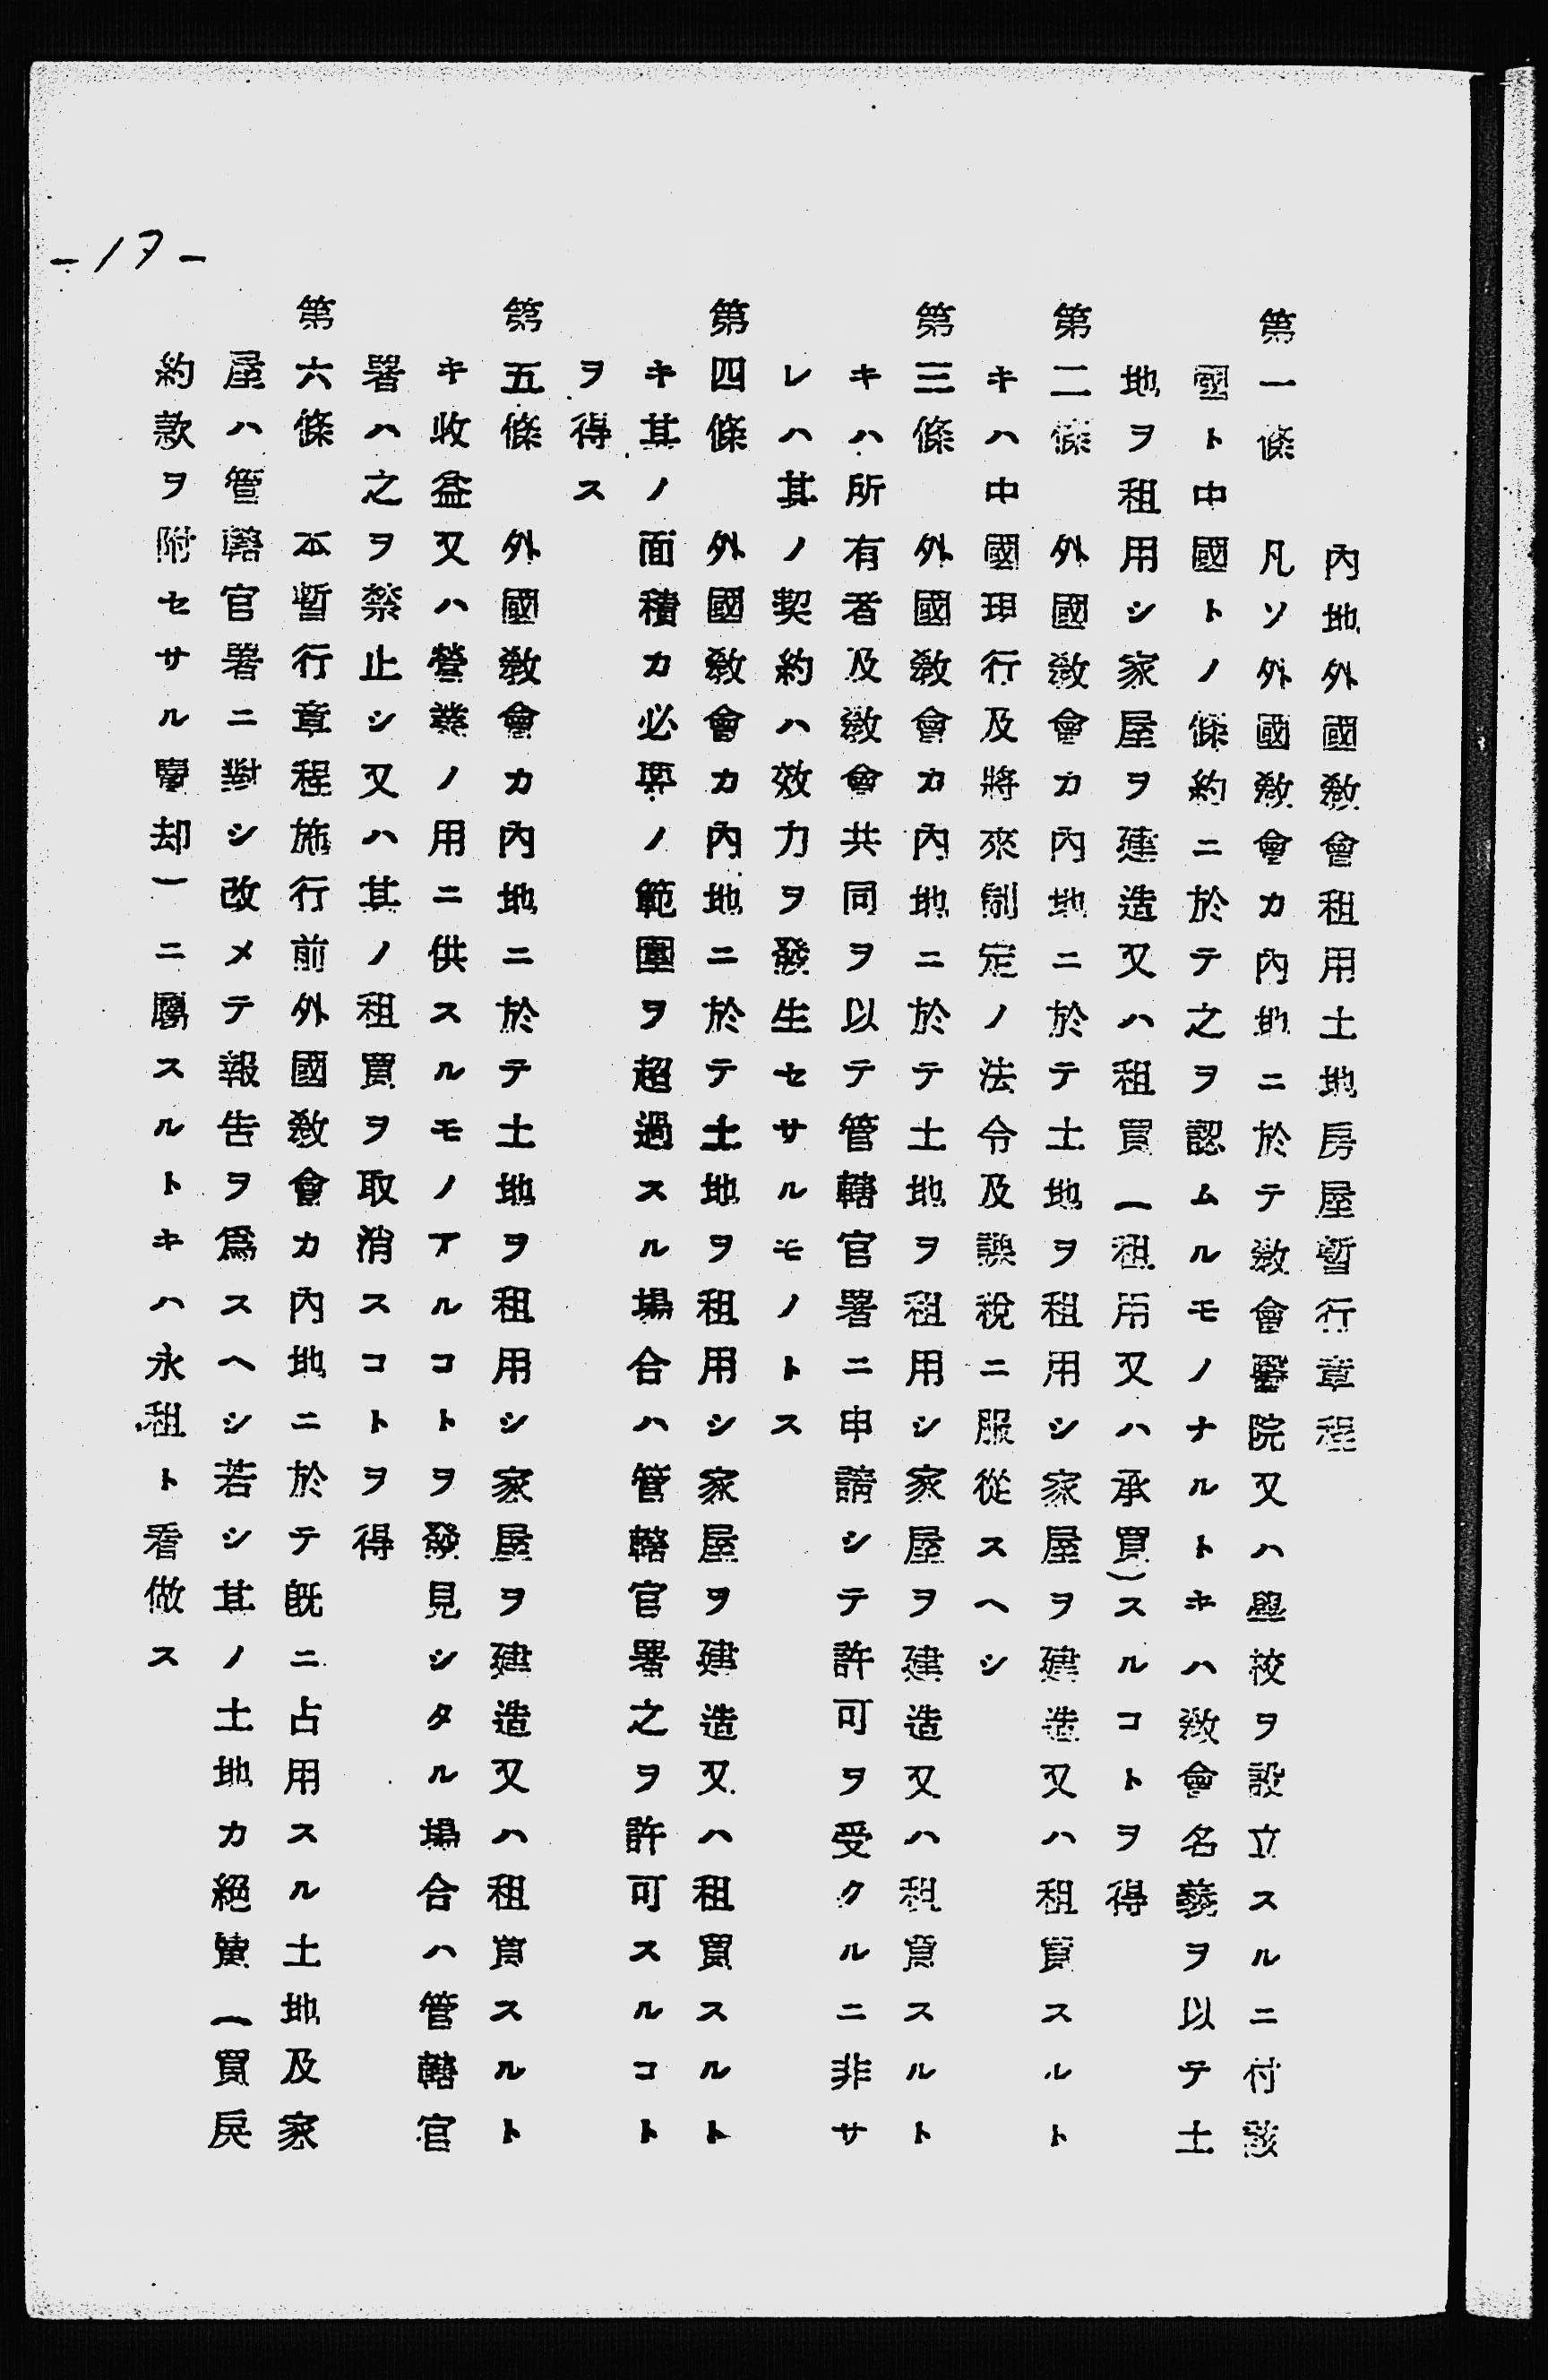 -17-
內地外國敎會租用土地房屋暫行章程
第一條　凡ソ外國敎會カ內地ニ於テ敎會醫院又ハ學校ヲ設立スルニ付該
國ト中國トノ條約ニ於テ之ヲ認ムルモノナルトキハ敎會名義ヲ以テ土
地ヲ租用シ家屋ヲ建造又ハ租買(租用又ハ承買)スルコトヲ得
第二條　外國敎會カ內地ニ於テ土地ヲ租用シ家屋ヲ建造又ハ租買スルト
キハ中國現行及將來制定ノ法令及課稅ニ服從スヘシ
第三條　外國敎會カ內地ニ於テ土地ヲ租用シ家屋ヲ建造又ハ租買スルト
キハ所有者及敎會共同ヲ以テ管轄官署ニ申請シテ許可ヲ受クルニ非サ
レハ其ノ契約ハ效力ヲ發生セサルモノトス
第四條　外國敎會カ內地ニ於テ土地ヲ租用シ家屋ヲ建造又ハ租買スルト
キ其ノ面積カ必要ノ範圍ヲ超過スル場合ハ管轄官署之ヲ許可スルコト
ヲ得ス
第五條　外國敎會カ內地ニ於テ土地ヲ租用シ家屋ヲ建造又ハ租買スルト
キ收益又ハ營業ノ用ニ供スルモノアルコトヲ發見シタル場合ハ管轄官
署ハ之ヲ禁止シ又ハ其ノ租買ヲ取消スコトヲ得
第六條　本暫行章程施行前外國敎會カ內地ニ於テ旣ニ占用スル土地及家
屋ハ管轄官署ニ對シ改メテ報告ヲ爲スヘシ若シ其ノ土地カ絕賣(買戾
約款ヲ附セサル賣却)ニ屬スルトキハ永租ト看做ス